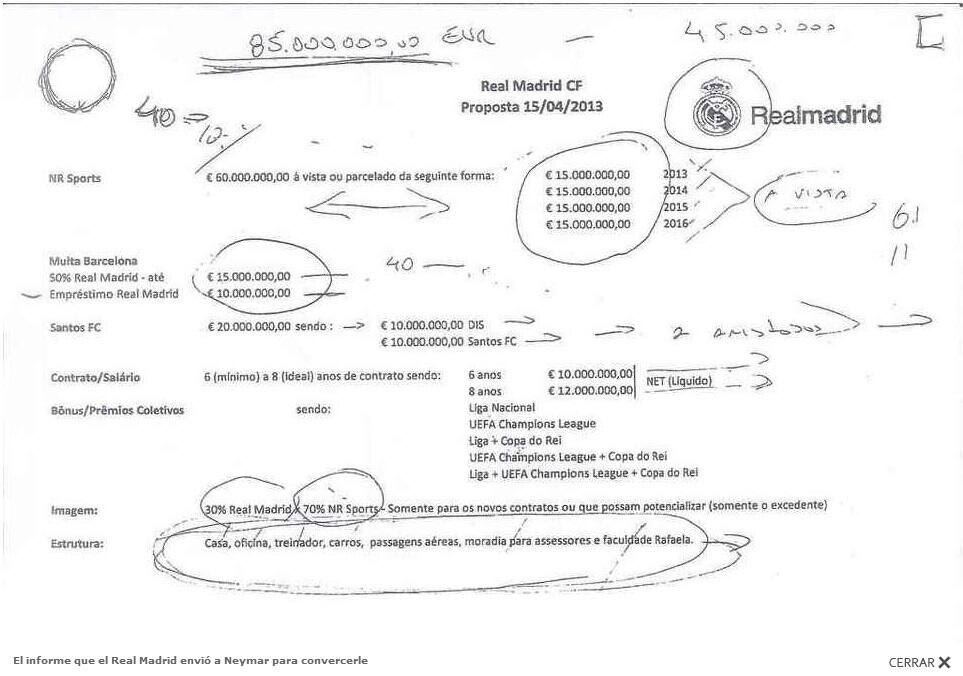 85.000.000,00 EUR — 45.000.000
Real Madrid CF
Proposta 15/04/2013
Realmadrid
40 =
NR Sports € 60.000.000,00 á vista ou parcelado da seguinte forma: € 15.000.000,00 2013
€ 15.000.000,00 2014
€ 15.000.000,00 2015
€ 15.000.000,00 2016
A VISTA
Multa Barcelona
50% Real Madrid - até € 15.000.000,00
40
Empréstimo Real Madrid € 10.000.000,00
Santos FC € 20.000.000,00 sendo : € 10.000.000,00 DIS
€ 10.000.000,00 Santos FC
2 amistosos
Contrato/Salário 6 (mínimo) a 8 (ideal) anos de contrato sendo: 6 anos € 10.000.000,00
8 anos € 12.000.000,00
NET (Líquido)
Bônus/Prêmios Coletivos sendo: Liga Nacional
UEFA Champions League
Liga + Copa do Rei
UEFA Champions League + Copa do Rei
Liga + UEFA Champions League + Copa do Rei
Imagem: 30% Real Madrid / 70% NR Sports - Somente para os novos contratos ou que possam potencializar (somente o excedente)
Estrutura: Casa, oficina, treinador, carros, passagens aéreas, moradia para assessores e faculdade Rafaela.
El informe que el Real Madrid envió a Neymar para convercerle
CERRAR X